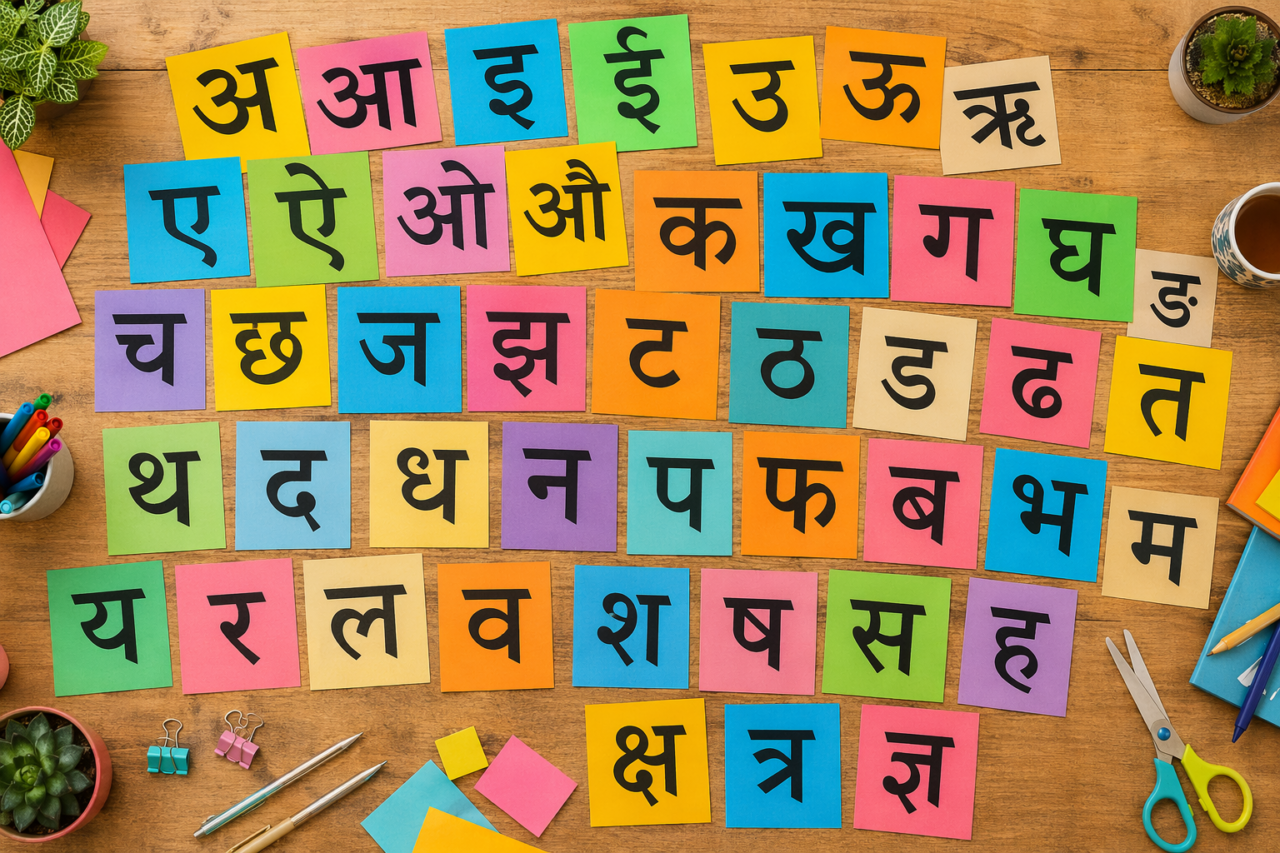 अ आ इ ई उ ऊ ऋ
ए ऐ ओ औ क ख ग घ ङ
च छ ज झ ट ठ ड ढ त
थ द ध न प फ ब भ म
य र ल व श ष स ह
क्ष त्र ज्ञ